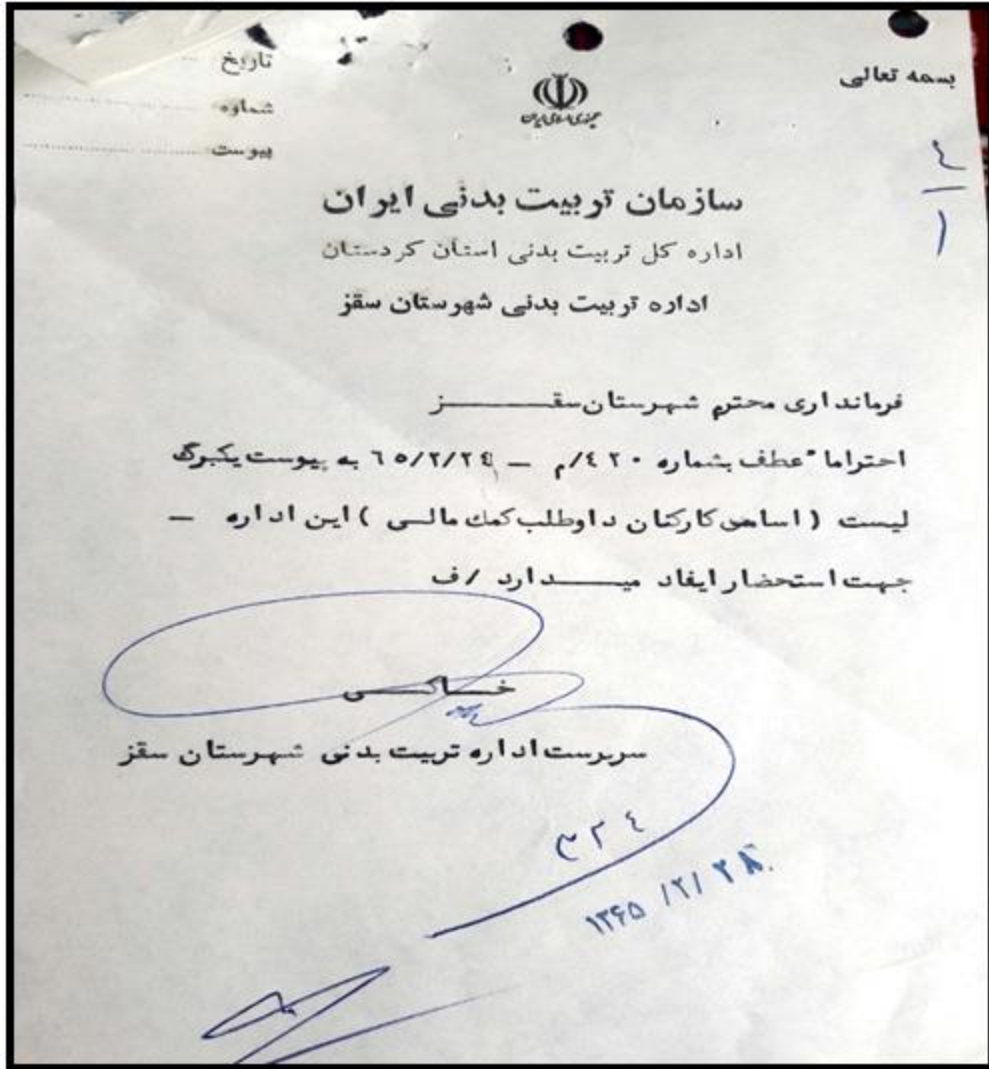 بسمه تعالی
تاریخ
شماره
پیوست
جمهوری اسلامی ایران
۴
۱
سازمان تربیت بدنی ایران
اداره کل تربیت بدنی استان کردستان
اداره تربیت بدنی شهرستان سقز
فرمانداری محترم شهرستان سقــــز
احتراما" عطف بشماره ۴۲۰/م – ۶۵/۲/۲۴ به پیوست یکبرگ
لیست ( اسامی کارکنان داوطلب کمک مالی ) این اداره –
جهت استحضار ایفاد میـــدارد /ف
خــاکـــی
سرپرست اداره تربیت بدنی شهرستان سقز
۱۳۶۵ /۲/ ۲۸